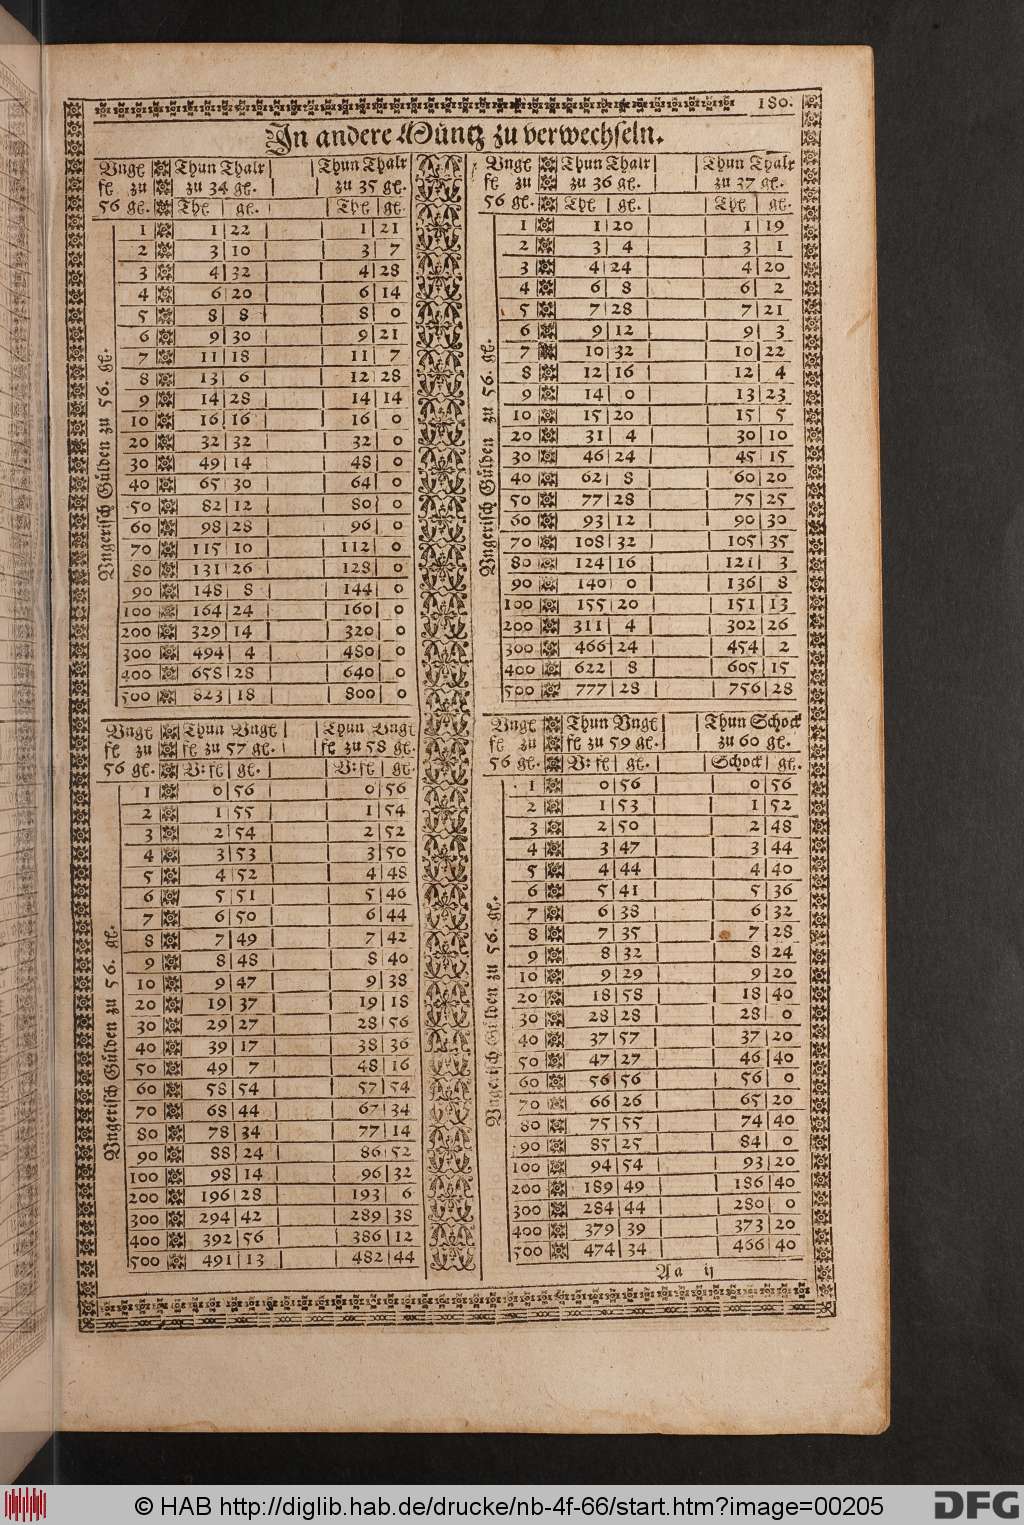 180.
In andere Müntz zu verwechseln.
Vngl Thun Thalr Thun Thalr
fl zu zu 34 gl. zu 35 gl.
56 gl. Thl gl. Thl gl.
Vngerisch Gülden zu 56. gl.
1 1 22 1 21
2 3 10 3 7
3 4 32 4 28
4 6 20 6 14
5 8 8 8 0
6 9 30 9 21
7 11 18 11 7
8 13 6 12 28
9 14 28 14 14
10 16 16 16 0
20 32 32 32 0
30 49 14 48 0
40 65 30 64 0
50 82 12 80 0
60 98 28 96 0
70 115 10 112 0
80 131 26 128 0
90 148 8 144 0
100 164 24 160 0
200 329 14 320 0
300 494 4 480 0
400 658 28 640 0
500 823 18 800 0
Vngl Thun Thalr Thun Thalr
fl zu zu 36 gl. zu 37 gl.
56 gl. Thl gl. Thl gl.
Vngerisch Gülden zu 56. gl.
1 1 20 1 19
2 3 4 3 1
3 4 24 4 20
4 6 8 6 2
5 7 28 7 21
6 9 12 9 3
7 10 32 10 22
8 12 16 12 4
9 14 0 13 23
10 15 20 15 5
20 31 4 30 10
30 46 24 45 15
40 62 8 60 20
50 77 28 75 25
60 93 12 90 30
70 108 32 105 35
80 124 16 121 3
90 140 0 136 8
100 155 20 151 13
200 311 4 302 26
300 466 24 454 2
400 622 8 605 15
500 777 28 756 28
Vngl Thun Vngl Thun Vngl
fl zu fl zu 57 gl. fl zu 58 gl.
56 gl. V: fl gl. V: fl gl.
Vngerisch Gülden zu 56. gl.
1 0 56 0 56
2 1 55 1 54
3 2 54 2 52
4 3 53 3 50
5 4 52 4 48
6 5 51 5 46
7 6 50 6 44
8 7 49 7 42
9 8 48 8 40
10 9 47 9 38
20 19 37 19 18
30 29 27 28 56
40 39 17 38 36
50 49 7 48 16
60 58 54 57 54
70 68 44 67 34
80 78 34 77 14
90 88 24 86 52
100 98 14 96 32
200 196 28 193 6
300 294 42 289 38
400 392 56 386 12
500 491 13 482 44
Vngl Thun Vngl Thun Schock
fl zu fl zu 59 gl. zu 60 gl.
56 gl. V: fl gl. Schock gl.
Vngerisch Gülden zu 56. gl.
1 0 56 0 56
2 1 53 1 52
3 2 50 2 48
4 3 47 3 44
5 4 44 4 40
6 5 41 5 36
7 6 38 6 32
8 7 35 7 28
9 8 32 8 24
10 9 29 9 20
20 18 58 18 40
30 28 28 28 0
40 37 57 37 20
50 47 27 46 40
60 56 56 56 0
70 66 26 65 20
80 75 55 74 40
90 85 25 84 0
100 94 54 93 20
200 189 49 186 40
300 284 44 280 0
400 379 39 373 20
500 474 34 466 40
Aa ij
© HAB http://diglib.hab.de/drucke/nb-4f-66/start.htm?image=00205
DFG